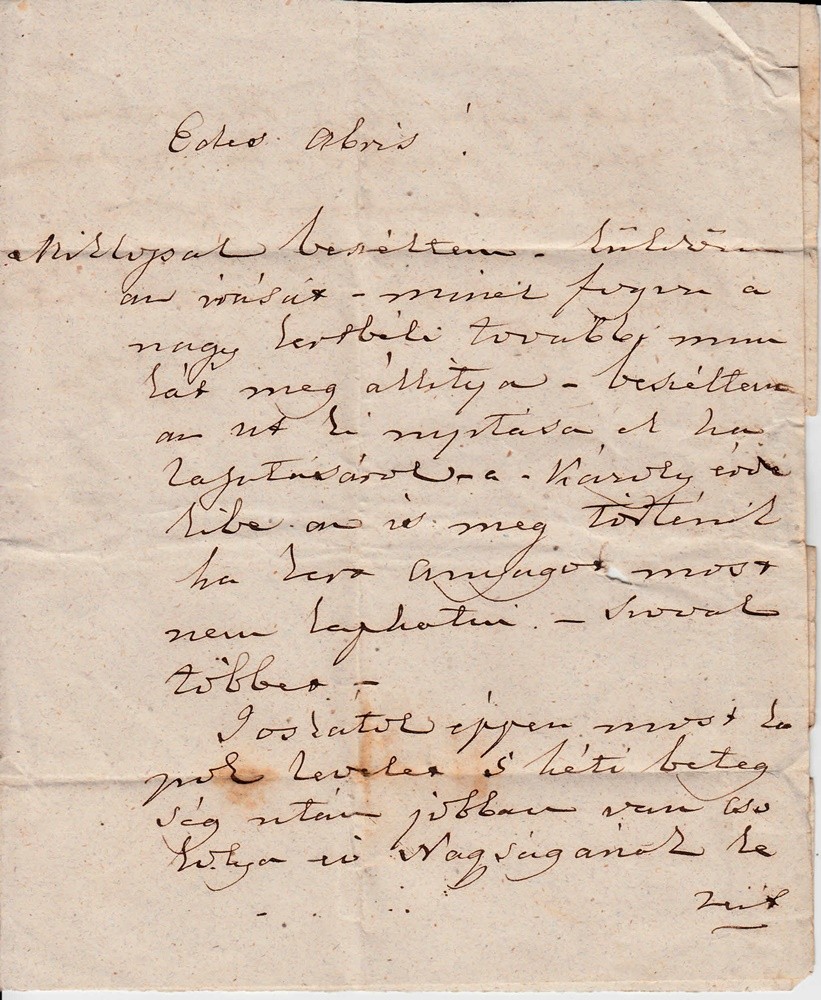 Edes Abris!
Miklossal beszéltem - küldöm
az irását - minek fogva a
nagy kertbéli további mun
kát meg állitya - beszéltem
az ut ki nyitása el ha
lasztásárol - a - Károly érde
kibe az is meg történik
ha kert anyagot most
nem kaphatni - Szoval
többet -
Joskátol éppen most ka
pok levelet 5 héti beteg
ség után jobban van cso
kolya eö Nagságának ke
zeit